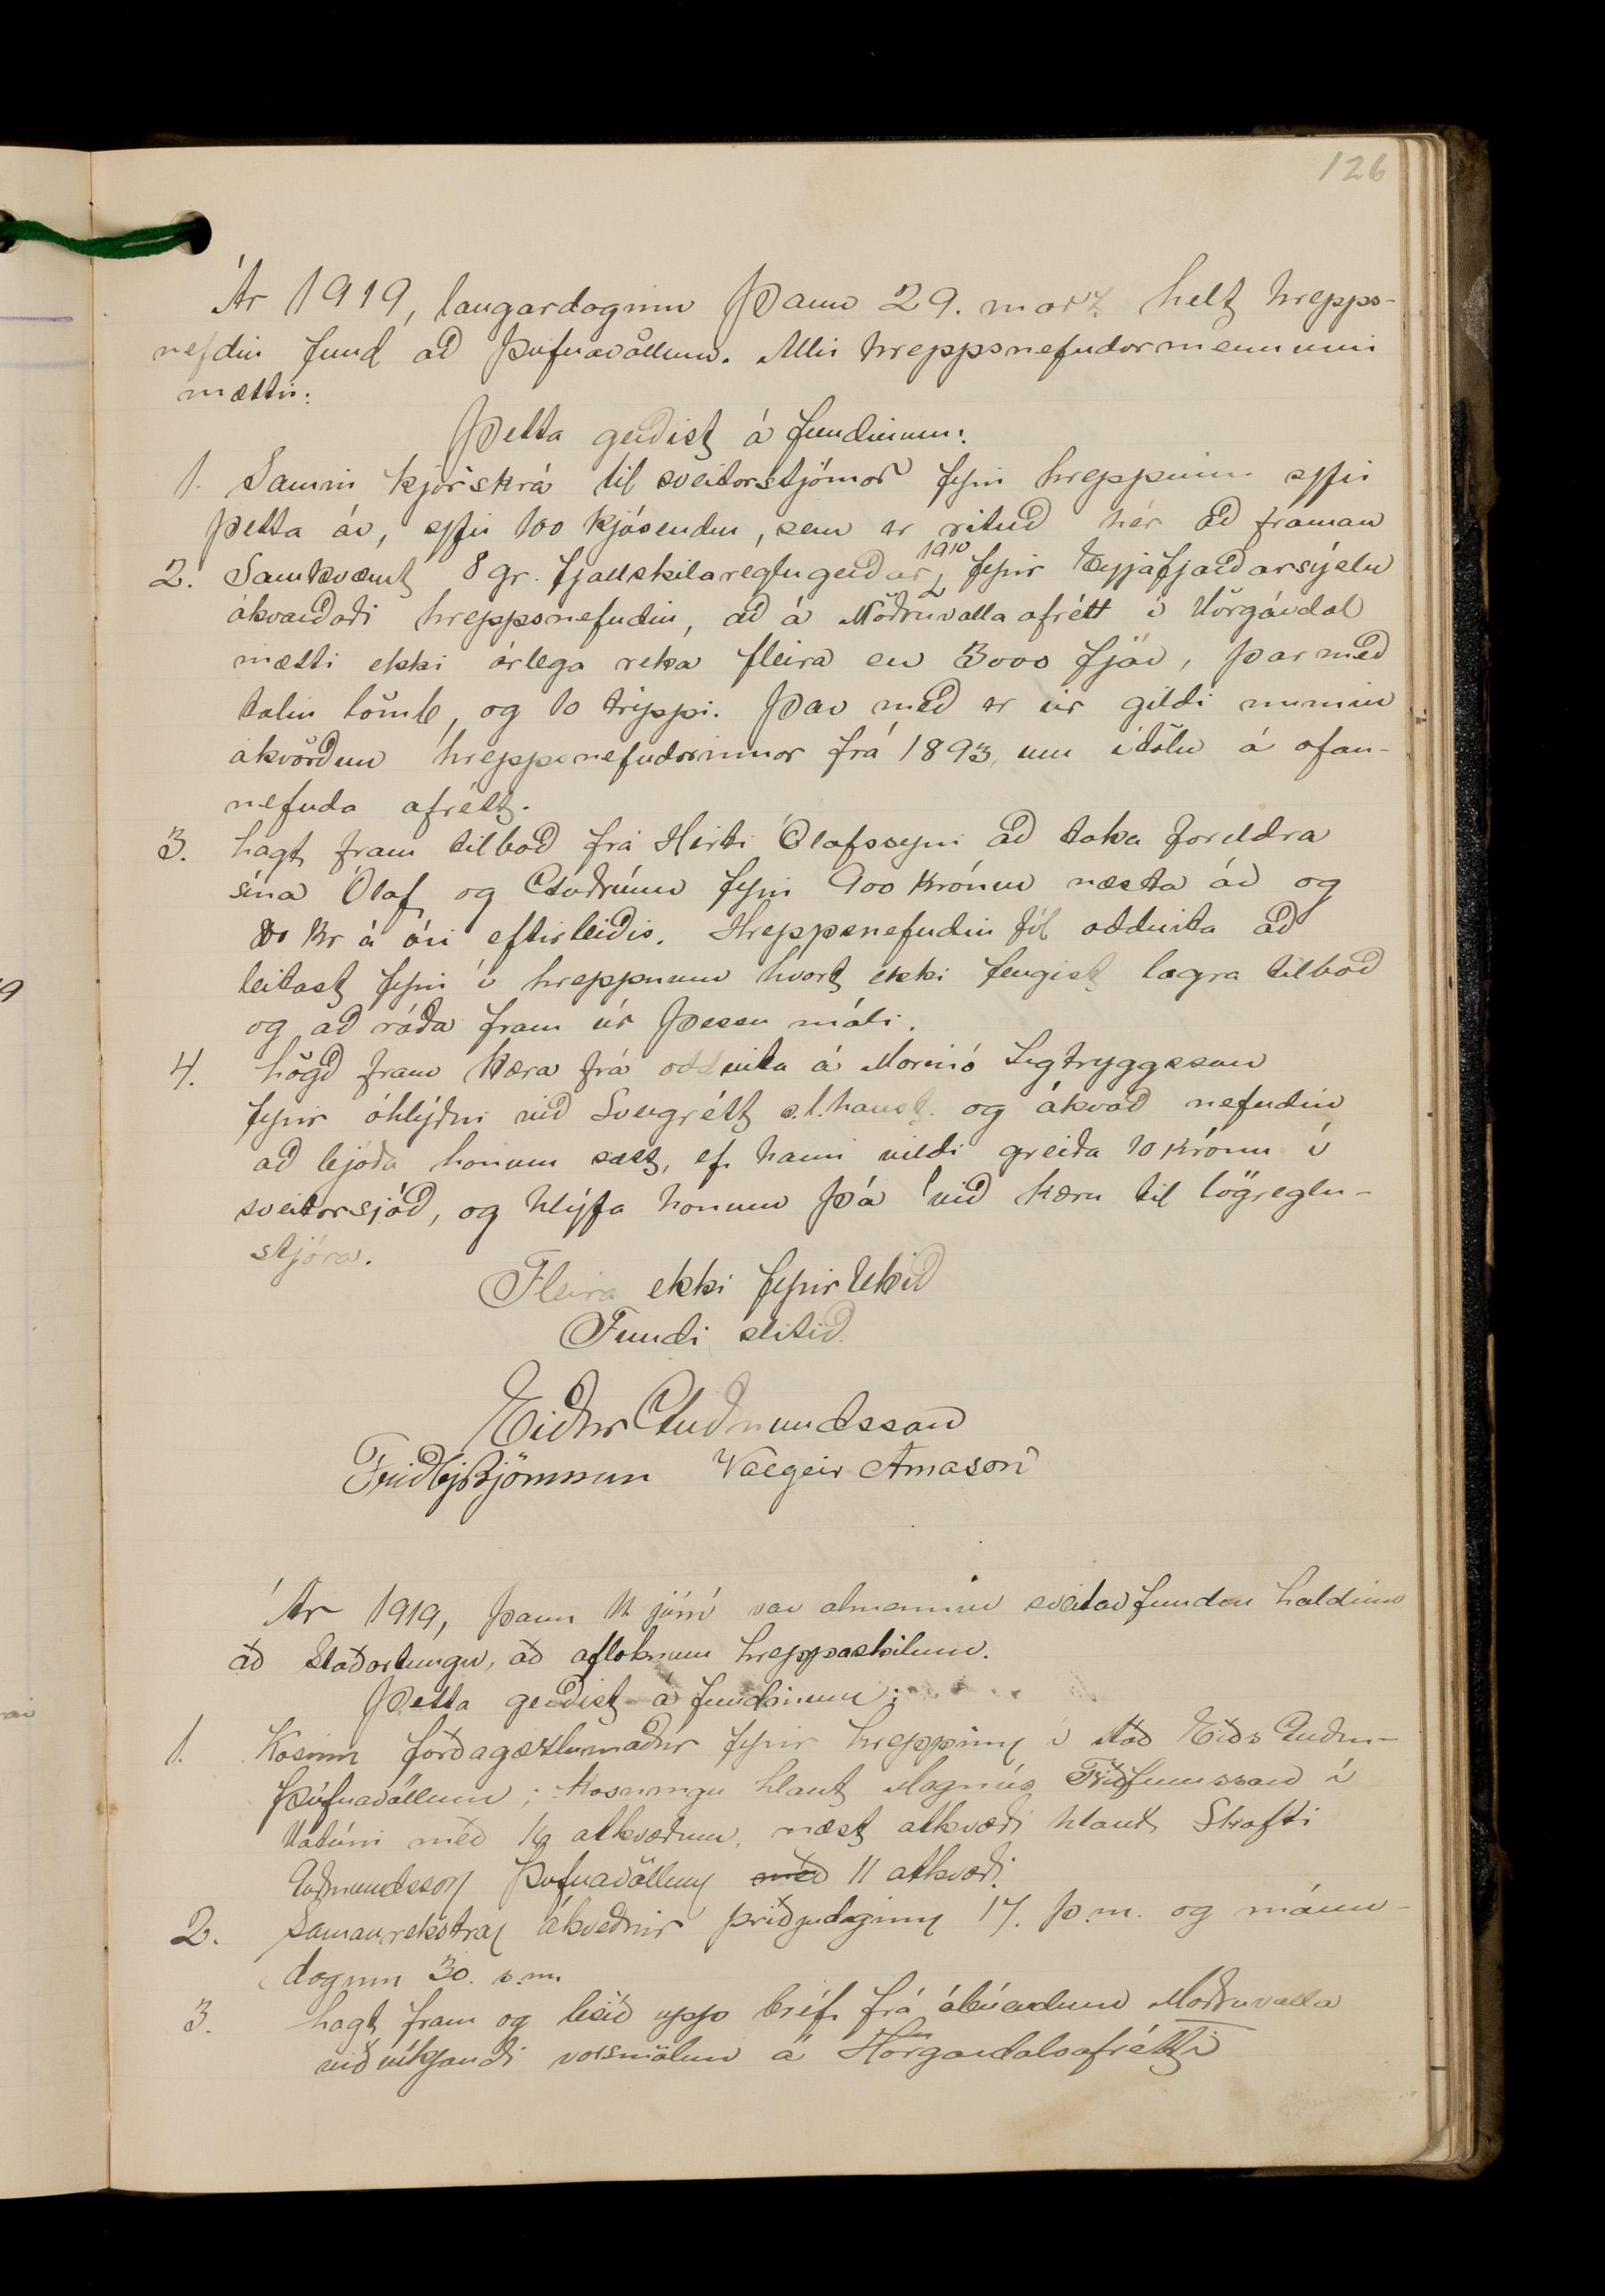 126
Ár 1919, laugardaginn þann 29. marz helt hrepps-
nefdin fund að Þúfnavöllum. Allir hreppsnefndarmennirnir
mættu.
Þetta gerðist á fundinum:
1. Samin kjörskrá til sveitarstjórnar fyrir hreppinn yfir
þetta ár, yfir 100 kjósendur, sem er rituð hér að framan
2. Samkvæmt 8 gr. fjallskilareglugerðar 1910 fyrir Eyjafjarðarsýslu
ákvarðaði hreppsnefndin, að á Möðruvallaafrétt í Hörgárdal
mætti ekki árlega reka fleira en 3000 fjár, þar með
talin lömb, og 10 trippi. Þar með er úr gildi numin
ákvörðun hreppsnefndarinnar frá 1893, um ítölu á ofan-
nefnda afrétt.
3. Lagt fram tilboð frá Hirti Ólafssyni að taka foreldra
sína Ólaf og Guðrúnu fyrir 900 krónur næsta ár og
kr á ári eftirleiðis. Hreppsnefndin fól oddvita að
leitast fyrir í hreppnum hvort ekki fengist lægra tilboð
og að ráða fram úr þessu máli.
4. Lögð fram kæra frá oddvita á Marinó Sigtryggsson
fyrir óhlýðni við Svengrétt s.l. haust. og ákvað nefndin
að bjóða honum sætt, ef hann vildi greiða 10 krónur í
sveitarsjóð, og hlýfa honum þá við kæru til lögreglu-
stjóra.
Fleira ekki fyrirtekið
Fundi slitið.
Eiður Guðmundsson
FriðbjBjörnsson Valgeir Árnason
Ár 1919, þann 11 júní var almennur sveitarfundur haldinn
að Staðartungu, að afloknum hreppaskilum.
Þetta gerðist á fundinum:
1. Kosinn forðagæzlumaður fyrir hreppinn í stað Eiðs Guðm-
Þúfnavöllum; Kosningu hlaut Magnús Friðfinnsson í
með atkvæðum, næst atkvæði hlaut Skafti
Guðmundsson Þúfnavöllum með 11 atkvæði.
2. Samanrekstrar ákveðnir þriðjudaginn 17. þ.m. og mánu-
daginn 30. s.m.
3. Lagt fram og lesið upp bréf frá ábúendum Möðruvalla
viðvíkjandi vorsmölun á Hörgárdalsafrétti